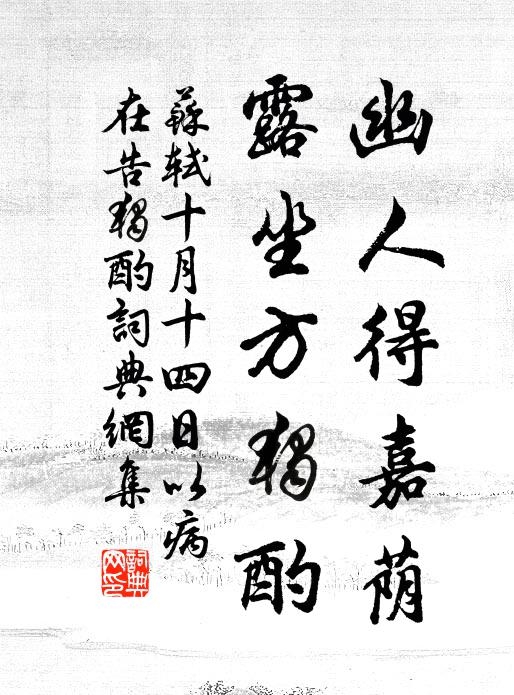 幽人得嘉荫
露坐方獨酌
蘇軾十月十四日以病
在告獨酌詞典網集
詞典网印